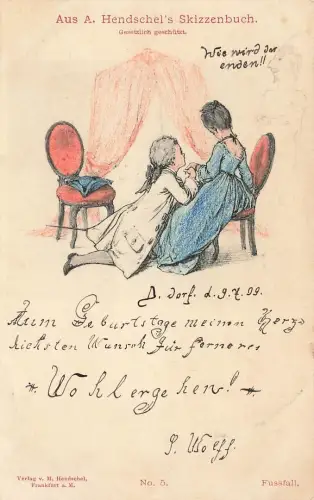 Aus A. Hendschel's Skizzenbuch.
Gesetzlich geschützt.
Wie wird das
enden!!
D. dorf. d. 9.7.09.
Zum Geburtstage meinen Herz-
lichsten Wunsch für ferneres
Wohlergehen!
Wolff.
Verlag v. M. Hendschel,
Frankfurt a. M.
No. 5.
Fussfall.